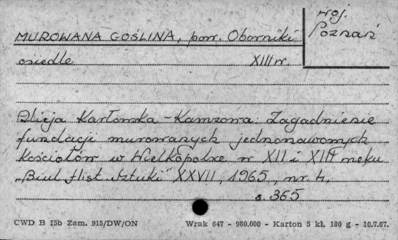 MUROWANA GOŚLINA, pow. Oborniki
woj. Poznań
osiedle XIII w.
Alicja Karłowska-Kamzowa: Zagadnienie
fundacji murowanych jednonawowych
kościołów w Wielkopolsce w XII i XIII wieku
"Biul. Hist. Sztuki" XXVII, 1965, nr. 4,
s. 365
CWD B 15b Zam. 915/DW/ON Wrak 647 - 980.000 - Karton 5 kl. 180 g - 10.7.67.